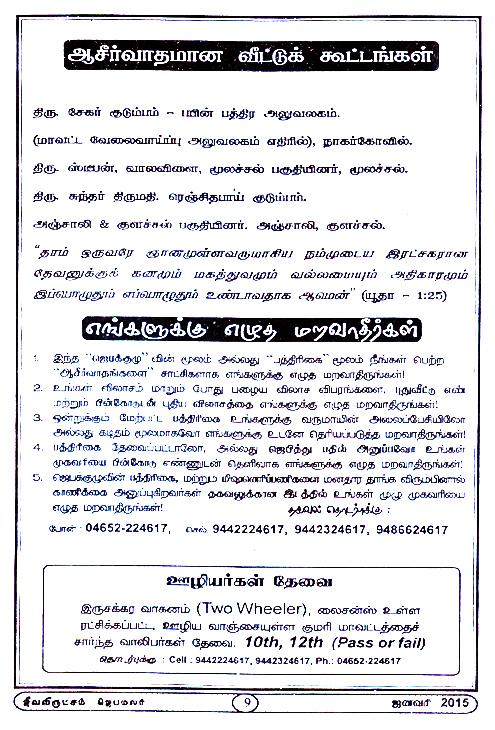 ஆசீர்வாதமான வீட்டுக் கூட்டங்கள்
திரு. சேகர் குடும்பம் – பயின் பத்திர அலுவலகம்.
(மாவட்ட வேலைவாய்ப்பு அலுவலகம் எதிரில்), நாகர்கோவில்.
திரு. ஸ்டீபன், வாலவிளை, மூலச்சல் பகுதியினர், மூலச்சல்.
திரு. சுந்தர் திருமதி. ரெஞ்சிதபாய் குடும்பம்.
அஞ்சாலி & குளச்சல் பகுதியினர். அஞ்சாலி, குளச்சல்.
“தாம் ஒருவரே ஞானமுள்ளவருமாகிய நம்முடைய இரட்சகரான
தேவனுக்குக் கனமும் மகத்துவமும் வல்லமையும் அதிகாரமும்
இப்பொழுதும் எப்பொழுதும் உண்டாவதாக ஆமென்” (யூதா – 1:25)
எங்களுக்கு எழுத மறவாதீர்கள்
1. இந்த “ஜெபக்குழு” வின் மூலம் அல்லது “பத்திரிகை” மூலம் நீங்கள் பெற்ற
“ஆசீர்வாதங்களை” சாட்சிகளாக எங்களுக்கு எழுத மறவாதிருங்கள்!
2. உங்கள் விலாசம் மாறும் போது பழைய விலாச விபரங்களை, புதுவீட்டு எண்
மற்றும் பின்கோடுடன் புதிய விலாசத்தை எங்களுக்கு எழுத மறவாதிருங்கள்!
3. ஒன்றுக்கும் மேற்பட்ட பத்திரிகை உங்களுக்கு வருமாயின் அலைப்பேசியிலோ
அல்லது கடிதம் மூலமாகவோ எங்களுக்கு உடனே தெரியப்படுத்த மறவாதிருங்கள்!
4. பத்திரிகை தேவைப்பட்டாலோ, அல்லது ஜெபித்து பதில் அனுப்பவோ உங்கள்
முகவரியை பின்கோடு எண்ணுடன் தெளிவாக எங்களுக்கு எழுத மறவாதிருங்கள்!
5. ஜெபக்குழுவின் பத்திரிகை, மற்றும் மிஷனெரிப்பணிகளை மனதார தாங்க விரும்பினால்
காணிக்கை அனுப்புகிறவர்கள் தகவலுக்கான இடத்தில் உங்கள் முழு முகவரியை
எழுத மறவாதிருங்கள்! தகவல் தொடர்புக்கு :
போன் : 04652-224617, செல் 9442224617, 9442324617, 9486624617
ஊழியர்கள் தேவை
இருசக்கர வாகனம் (Two Wheeler), லைசன்ஸ் உள்ள
ரட்சிக்கப்பட்ட, ஊழிய வாஞ்சையுள்ள குமரி மாவட்டத்தைச்
சார்ந்த வாலிபர்கள் தேவை. 10th, 12th (Pass or fail)
தொடர்புக்கு : Cell : 9442224617, 9442324617, Ph.: 04652-224617
ஜீவவிருட்சம் ஜெபமலர் 9 ஜனவரி 2015